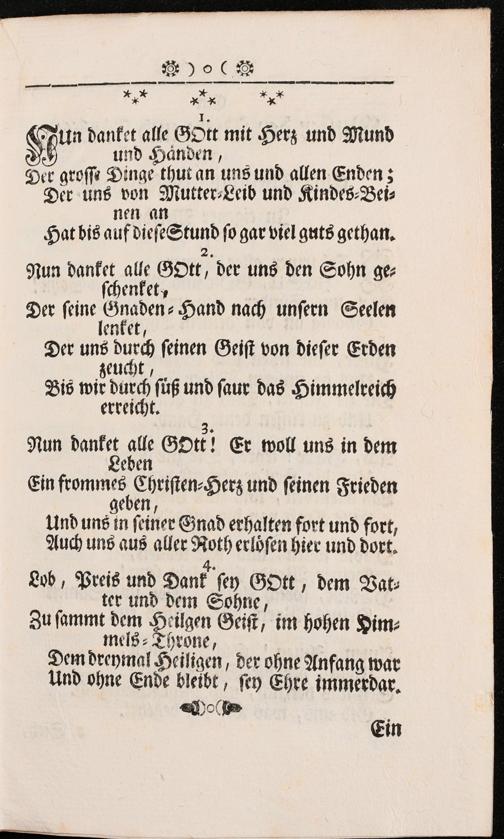 ) o (
1.
NUn danket alle GOtt mit Herz und Mund
und Händen,
Der grosse Dinge thut an uns und allen Enden;
Der uns von Mutter-Leib und Kindes-Bei-
nen an
Hat bis auf diese Stund so gar viel guts gethan.
2.
Nun danket alle GOtt, der uns den Sohn ge-
schenket,
Der seine Gnaden-Hand nach unsern Seelen
lenket,
Der uns durch seinen Geist von dieser Erden
zeucht,
Bis wir durch süß und saur das Himmelreich
erreicht.
3.
Nun danket alle GOtt! Er woll uns in dem
Leben
Ein frommes Christen-Herz und seinen Frieden
geben,
Und uns in seiner Gnad erhalten fort und fort,
Auch uns aus aller Noth erlösen hier und dort.
4.
Lob, Preis und Dank sey GOtt, dem Vat-
ter und dem Sohne,
Zu sammt dem Heilgen Geist, im hohen Him-
mels-Throne,
Dem dreymal Heiligen, der ohne Anfang war
Und ohne Ende bleibt, sey Ehre immerdar.
)o(
Ein